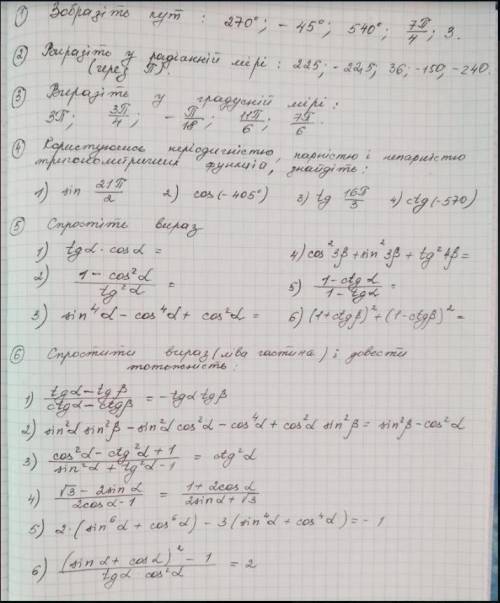 ① Зобразіть кут : 270°; - 45°; 540°; 7π/4; 3.
② Виразіть у радіанній мірі : 225; - 22,5; 36; -150; -240.
(через π).
③ Виразіть у градусній мірі :
3π; 3π/4; - π/18; 11π/6; 7π/6.
④ Користуючись періодичністю, парністю і непарністю
тригонометричних функцій, знайдіть :
1) sin 21π/2 2) cos(-405°) 3) tg 16π/3 4) ctg(-570)
⑤ Спростіть вираз
1) tgα · cosα = 4) cos²3β + sin²3β + tg²4β =
2) (1 - cos²α)/(tg²α) = 5) (1 - ctgα)/(1 - tgα) =
3) sin⁴α - cos⁴α + cos²α = 6) (1+ctgβ)² + (1-ctgβ)² =
⑥ Спростити вираз (ліва частина) і довести
тотожність :
1) (tgα - tgβ)/(ctgα - ctgβ) = -tgα tgβ
2) sin²α sin²β - sin²α cos²α - cos⁴α + cos²α sin²β = sin²β - cos²α
3) (cos²α - ctg²α + 1)/(sin²α + tg²α - 1) = ctg²α
4) (√3 - 2sinα)/(2cosα - 1) = (1 + 2cosα)/(2sinα + √3)
5) 2·(sin⁶α + cos⁶α) - 3(sin⁴α + cos⁴α) = - 1
6) ((sinα + cosα)² - 1)/(tgα cos²α) = 2